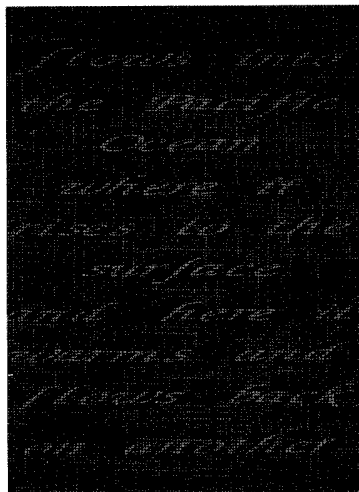 flows into
the Pacific
Ocean
where it
rises to the
surface
and here it
warms and
flows back
on another